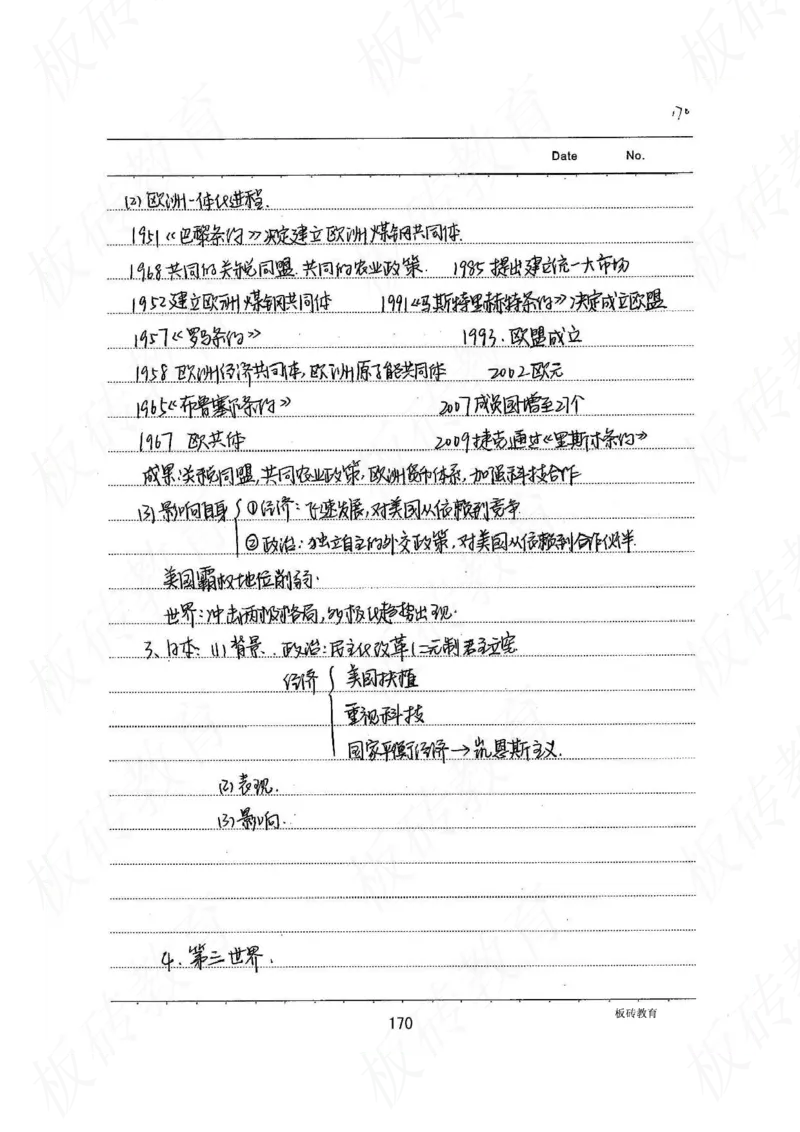 170
Date No.
(2) 欧洲一体化进程.
1951《巴黎条约》决定建立欧洲煤钢共同体.
1968共同的关税同盟.共同的农业政策. 1985提出建立统一大市场
1952建立欧洲煤钢共同体 1991《马斯特里赫特条约》决定成立欧盟
1957《罗马条约》 1993.欧盟成立
1958 欧洲经济共同体,欧洲原子能共同体 2002欧元
1965《布鲁塞尔条约》 2007成员国增至27个
1967 欧共体 2009捷克通过《里斯本条约》
成果:关税同盟,共同农业政策,欧洲货币体系,加强科技合作
(3)影响自身 ①经济:飞速发展,对美国从依赖到竞争
②政治:独立自主的外交政策,对美国从依赖到合作伙伴
美国霸权地位削弱.
世界:冲击两极格局,多极化趋势出现.
3、日本: (1)背景. 政治:民主化改革(二元制君主立宪
经济 美国扶植
重视科技
国家平衡经济→凯恩斯主义.
(2)表现.
(3)影响.
4.第三世界.
170
板砖教育